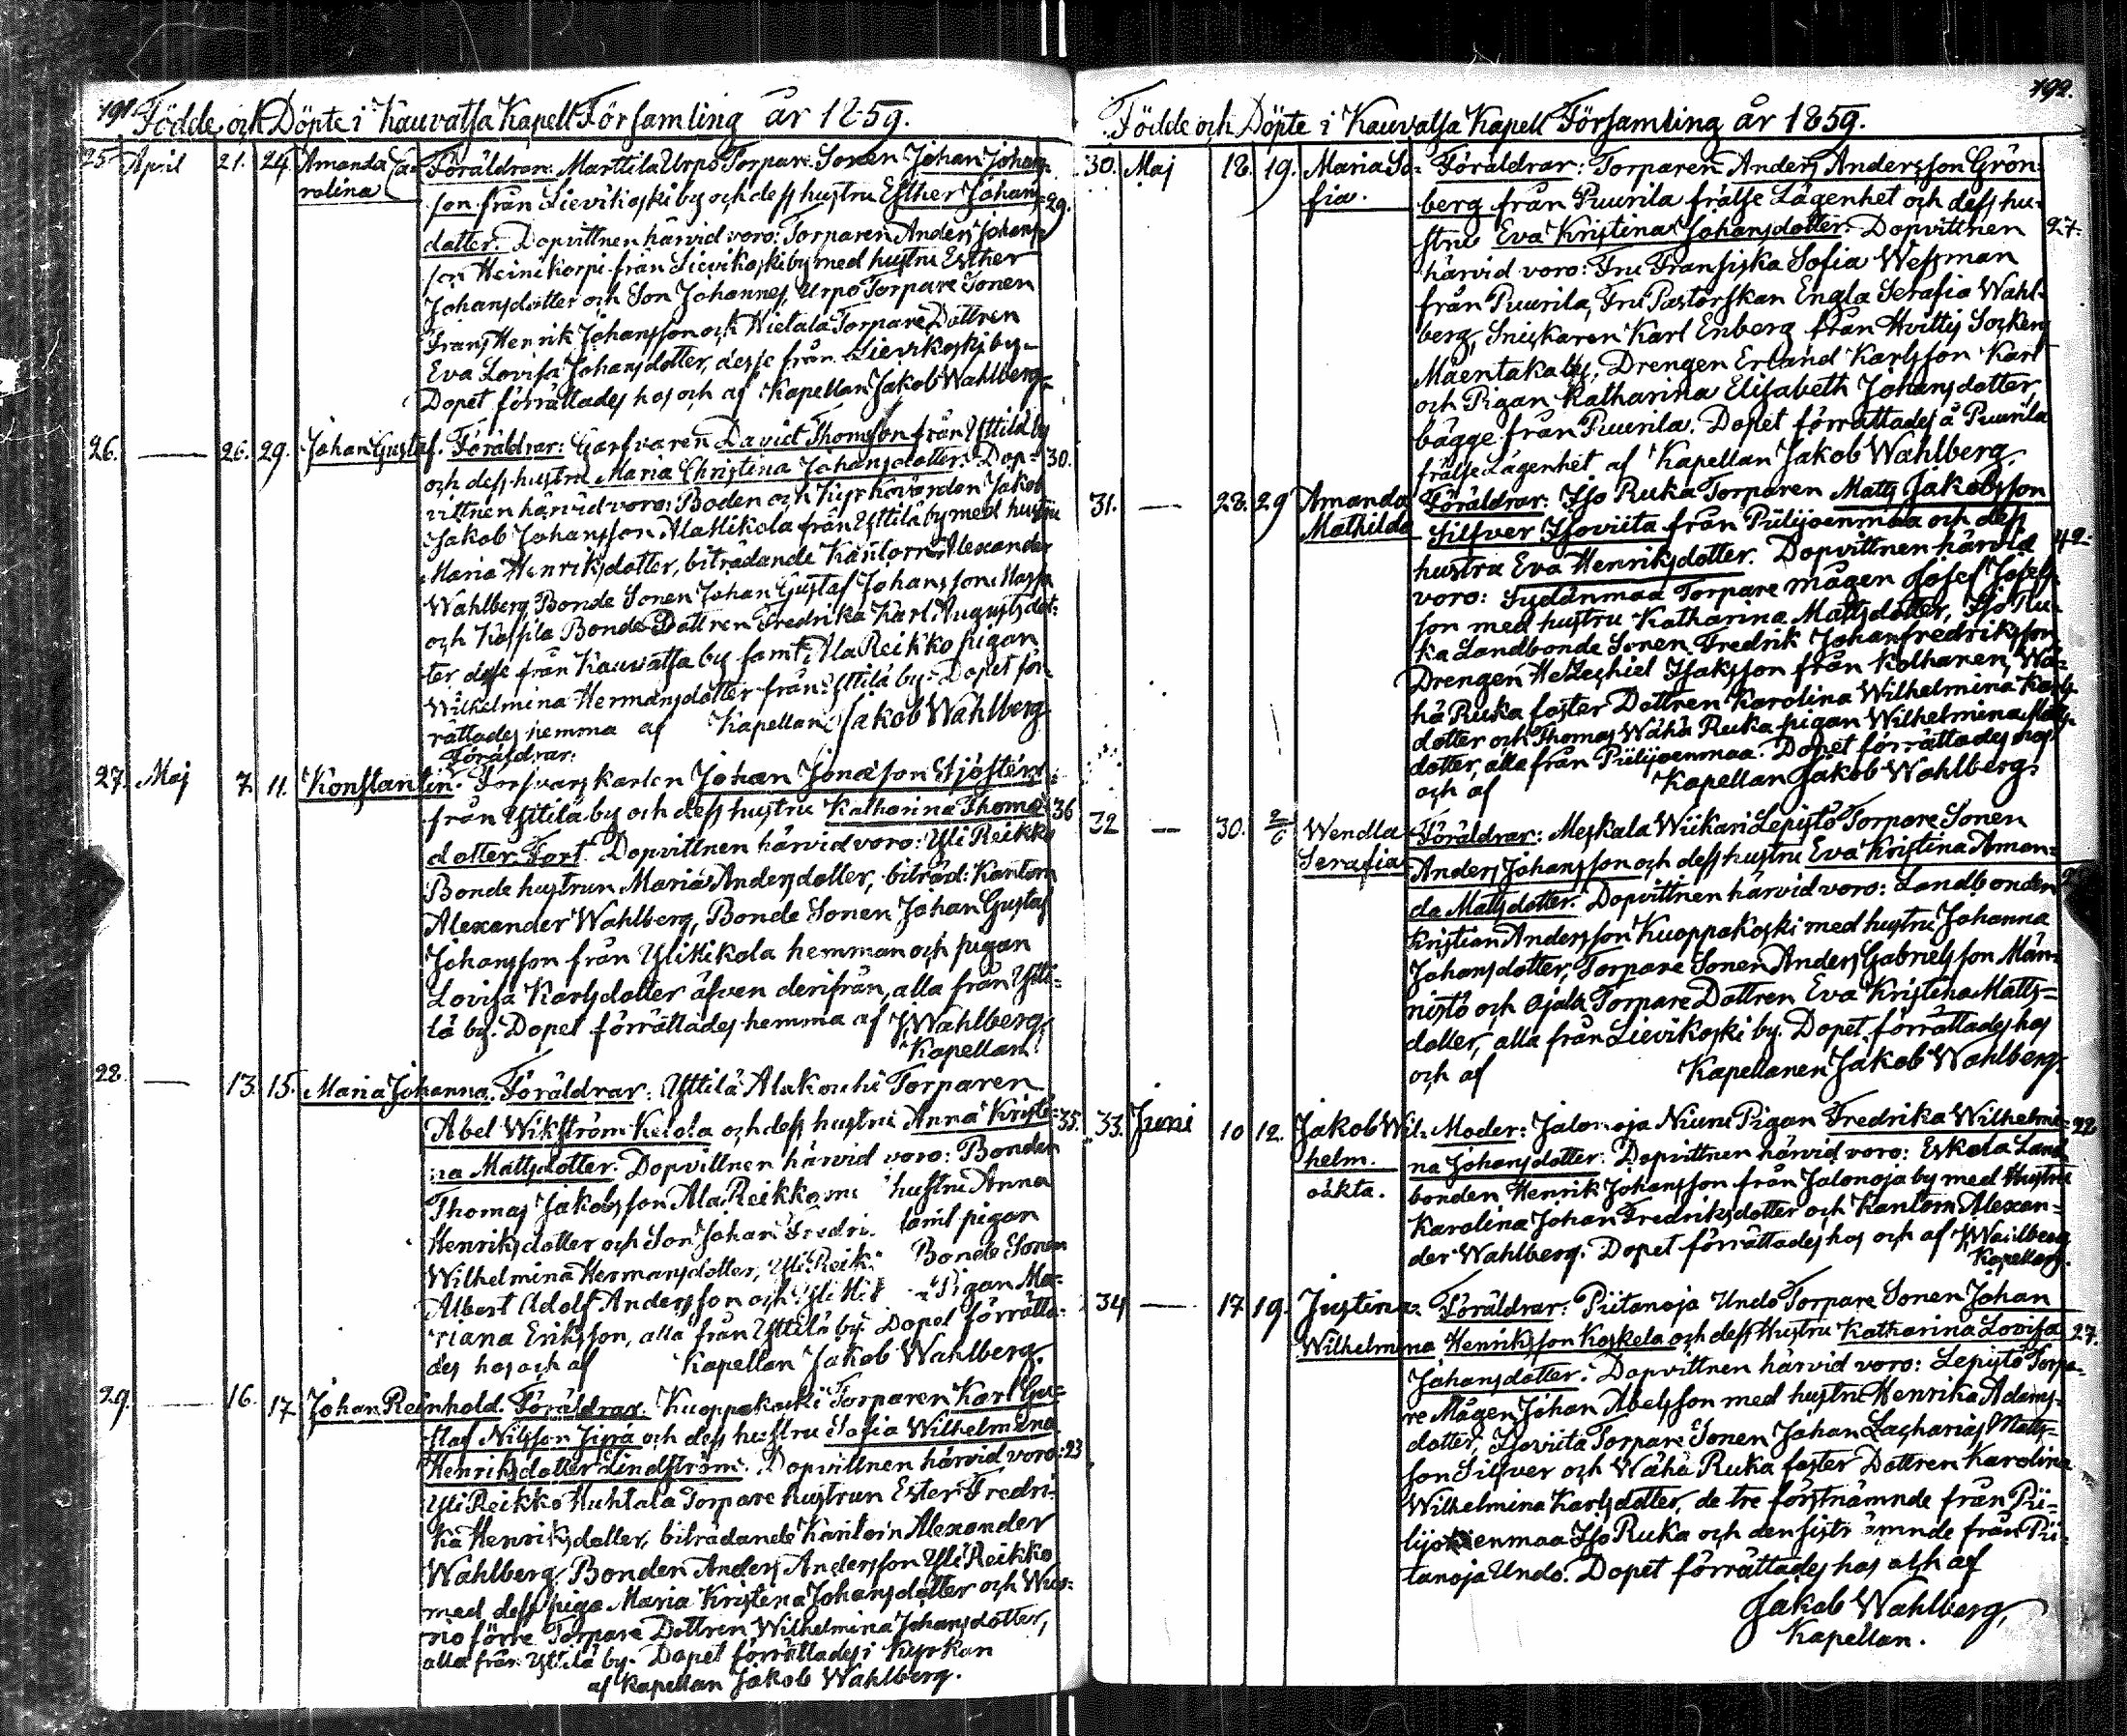 191.
Födde och Döpte i Kauvatsa Kapell Församling år 1859.
25. April 21. 24. Amanda Ca= Föräldrar: Marttila Urpo Torpare Sonen Johan Johans=
rolina son från Lievikoski by och dess hustru Esther Johans= 29.
dotter. Dopvittnen härvid voro: Torparen Anders Johans=
son Heinikorpi från Lievikoski by med hustru Esther
Johansdotter och Son Johannes, Urpo Torpare Sonen
Frans Henrik Johansson och Hietala Torpare Dottren
Eva Lovisa Johansdotter, desse från Lievikoski by.
Dopet förrättades hos och af Kapellan Jakob Wahlberg.
26. — 26. 29. Johan Gustaf. Föräldrar: Garfvaren David Thomsson från Yttilä by
och dess hustru Maria Christina Johansdotter. Dop= 30.
vittnen härvid voro: Boden och Kyrkovärden Jakob
Jakob Johansson AlaKikola från Yttilä by med hustru
Maria Henriksdotter, biträdande Kantorn Alexander
Wahlberg, Bonde Sonen Johan Gustaf Johansson
och Kassila Bonde Dottren Fredrika Karl Augustsdot=
ter desse från Kauvatsa by samt AlaReikko pigan
Wilhelmina Hermansdotter från Yttilä by. Dopet för=
rättades hemma af Kapellan Jakob Wahlberg
Föräldrar:
27. Maj 7. 11. Konstantin. Försvarskarlen Johan Jonasson
från Yttilä by och dess hustru Katharina Thomas 36
dotter Fort. Dopvittnen härvid voro: YliReikko
Bonde hustrun Maria Andersdotter, biträd: Kantorn
Alexander Wahlberg, Bonde Sonen Johan Gustaf
Johansson från YliKikola hemman och pigan
Lovisa Karlsdotter äfven derifrån, alla från Ytti=
lä by. Dopet förrättades hemma af J. Wahlberg,
Kapellan.
28. — 13. 15. Maria Johanna. Föräldrar: Yttilä Alakouhi Torparen
Abel Wikström Kelola och dess hustru Anna Kristi= 35.
na Mattsdotter. Dopvittnen härvid voro: Bonden
Thomas Jakobsson AlaReikko hustru Anna
Henriksdotter och Son Johan Fredri samt pigan
Wilhelmina Hermansdotter, YliReik Bonde Sonen
Albert Adolf Andersson och Pigan Ma=
riana Eriksson, alla från Yttilä by. Dopet förrätta=
des hos och af Kapellan Jakob Wahlberg.
29. — 16. 17 Johan Reinhold. Föräldrar. Kuoppakoski Torparen Karl Gu=
staf Nilsson och dess hustru Sofia Wilhelmina
Henriksdotter Lindström. Dopvittnen härvid voro: 23
YliReikko Huhtala Torpare hustrun Ester Fredri=
ka Henriksdotter, biträdande Kantorn Alexander
Wahlberg, Bonden Anders Andersson YliReikko
med dess piga Maria Kristina Johansdotter och Wuo=
rio förre Torpare Dottren Wilhelmina Johansdotter,
alla från Yttilä by. Dopet förrättades i Kyrkan
af Kapellan Jakob Wahlberg.
192.
Födde och Döpte i Kauvatsa Kapell Församling år 1859.
30. Maj 18. 19. Maria So= Föräldrar: Torparen Anders Andersson Grön=
fia. berg från Puurila frälse Lägenhet och dess hu=
stru Eva Kristina Johansdotter. Dopvittnen 27.
härvid voro: Fru Fransiska Sofia Wessman
från Puurila, Fru Pastorskan Engla Serafia Wahl=
berg, Snickaren Karl Enberg från Hvittis Socken,
Mäentaka by, Drengen Erland Karlsson Karl
och Pigan Katharina Elisabeth Johansdotter
bägge från Puurila. Dopet förrättades å Puurila
frälse Lägenhet af Kapellan Jakob Wahlberg.
31. — 28. 29 Amanda Föräldrar: Iso Ruka Torparen Matts Jakobsson
Mathilda Silfver Isoviita från Piilijoenmaa och dess
hustru Eva Henriksdotter. Dopvittnen härvid 42.
voro: Sydänmaa Torpare mågen Josef Josefs=
son med hustru Katharina Mattsdotter, Iso Ru=
ka Landbonde Sonen Fredrik Johanfredriksson,
Drengen Hezechiel Isaksson från Kolhanen, Wä=
hä Ruka foster Dottren Karolina Wilhelmina Karls=
dotter och Thomas Wähä Ruka pigan Wilhelmina Matts=
dotter, alla från Piilijoenmaa. Dopet förrättades hos
och af Kapellan Jakob Wahlberg.
32 — 30. 2/6 Wendla Föräldrar: Meskala Wiikari Lepistö Torpare Sonen
Serafia Anders Johansson och dess hustru Eva Kristina Aman=
da Mattsdotter. Dopvittnen härvid voro: Landbonden
Kristian Andersson Kuoppakoski med hustru Johanna
Johansdotter, Torpare Sonen Anders Gabrielsson Män=
nistö och Ojala Torpare Dottren Eva Kristina Matts=
dotter, alla från Lievikoski by. Dopet förrättades hos
och af Kapellanen Jakob Wahlberg.
33. Juni 10 12. Jakob Wil= Moder: Jalonoja Niuni Pigan Fredrika Wilhelmi= 22
helm. na Johansdotter. Dopvittnen härvid voro: Eskola Land=
oäkta. bonden Henrik Johansson från Jalonoja by med Hustru
Karolina Johan Fredriksdotter och Kantorn Alexan=
der Wahlberg. Dopet förrättades hos och af J. Wahlberg
Kapellan.
34 — 17 19. Justina Föräldrar: Piitanoja Undo Torpare Sonen Johan
Wilhelmina Henriksson Koskela och dess Hustru Katharina Lovisa 27.
Johansdotter. Dopvittnen härvid voro: Lepistö Torpa=
re Mågen Johan Abelsson med hustru Henrika Adams=
dotter, Isoviita Torpare Sonen Johan Zacharias Matts=
son Silfver och Wähä Ruka foster Dottren Karolina
Wilhelmina Karlsdotter, de tre förstnämnde från Pii=
lijokenmaa Iso Ruka och den sistnämnde från Pii=
tanoja Undo. Dopet förrättades hos och af
Jakob Wahlberg,
Kapellan.